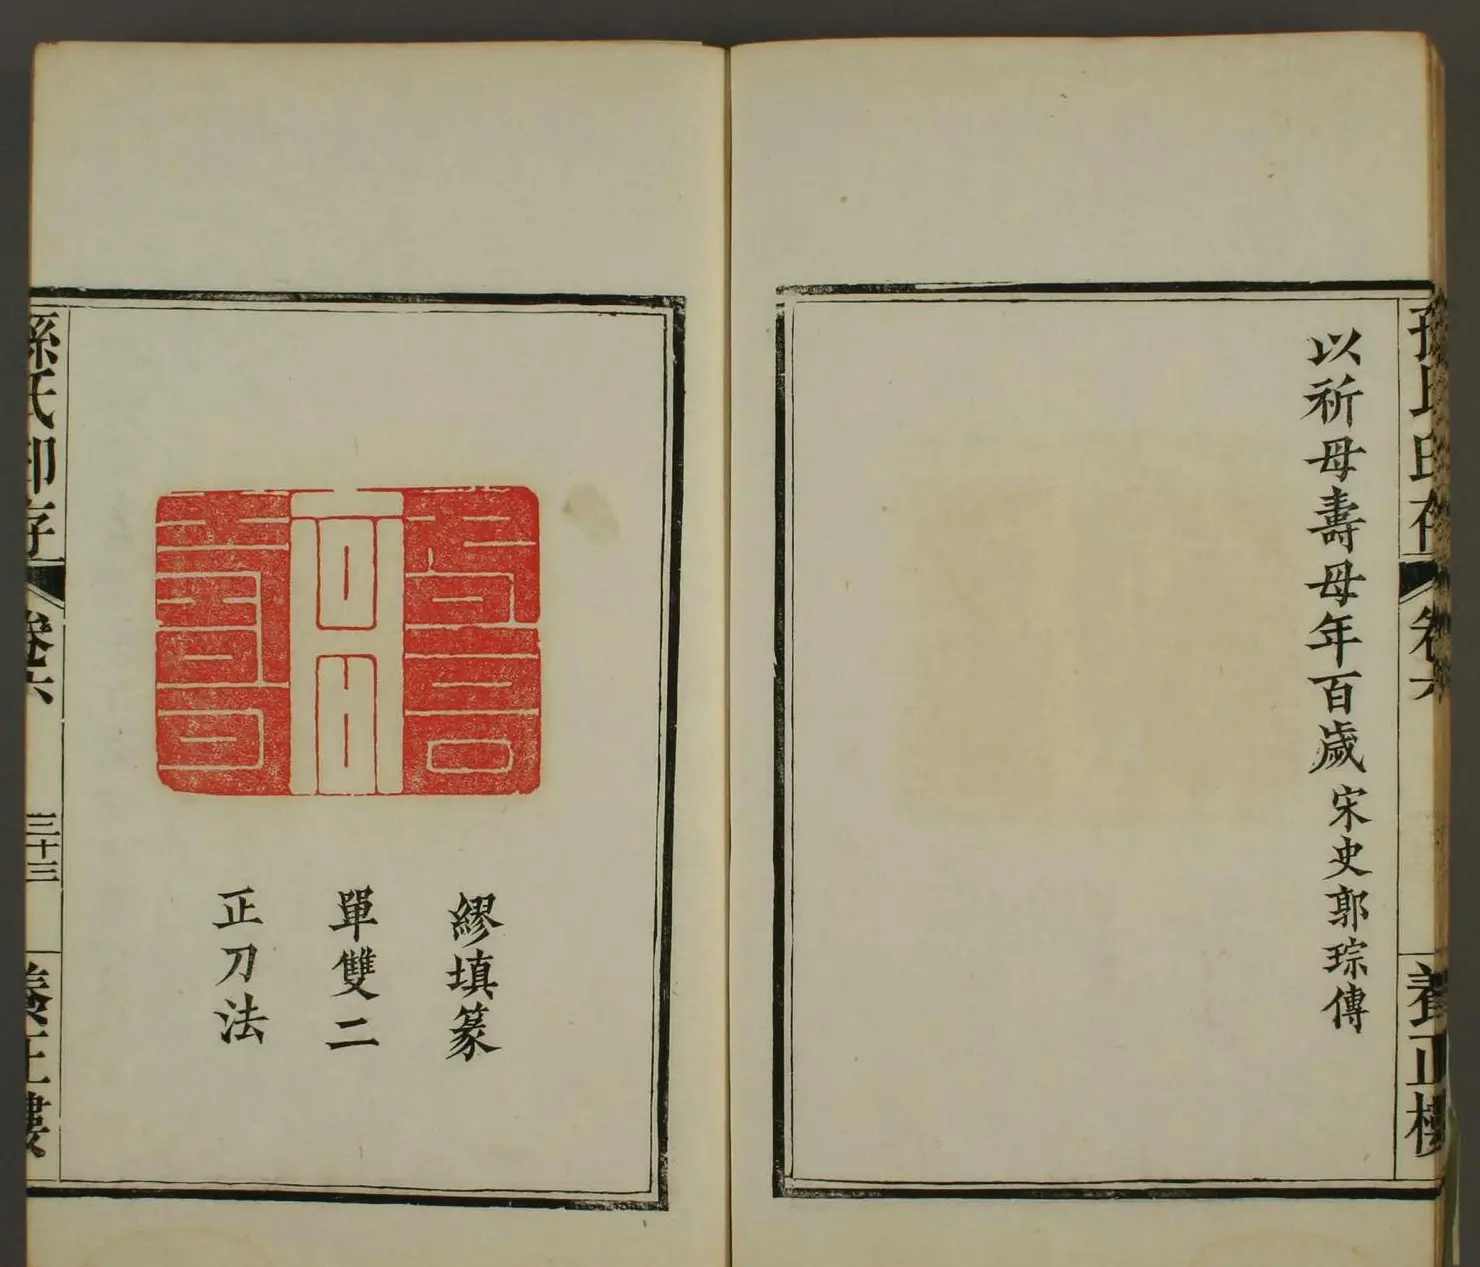 以祈母壽母年百歲宋史郭琮傳
繆填篆
單雙二
正刀法
孫氏印存
卷六
三十三
養正樓